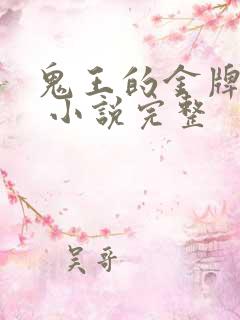 鬼王的金牌
小說完整
吴哥